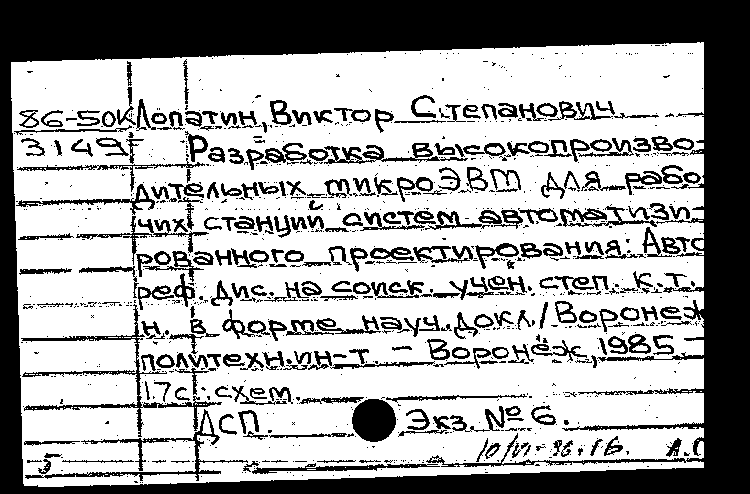 86-50К Лопатин, Виктор Степанович.
3149 Разработка высокопроизво-
дительных микроЭВМ для рабо
чих станций систем автоматизи-
рованного проектирования: Авто
реф. дис. на соиск. учен. степ. к.т.
н. в форме науч. докл./Воронеж
политехн. ин-т. - Воронеж, 1985. -
17с.: схем.
ДСП. Экз. № 6.
5